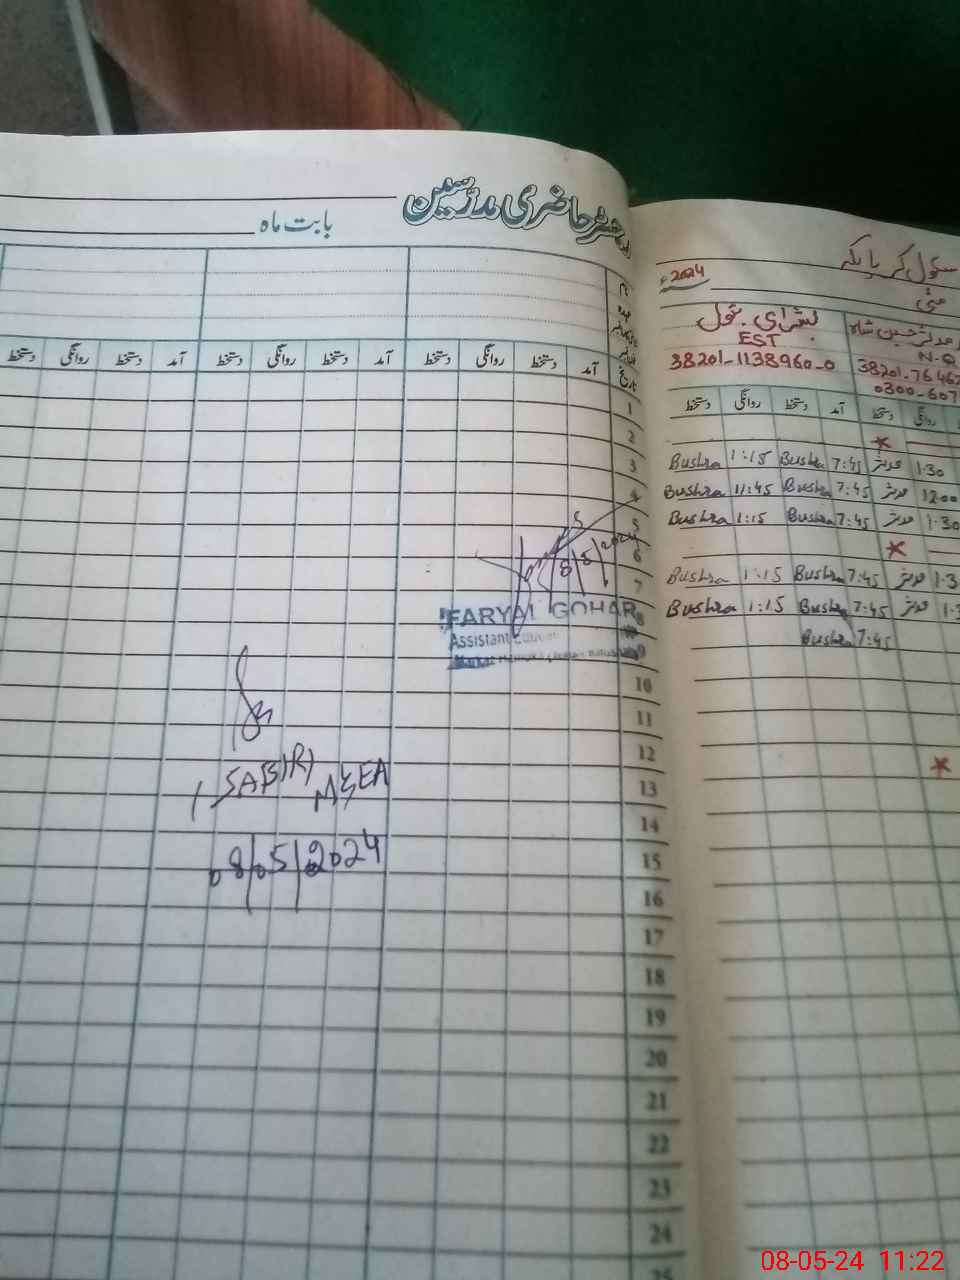 رجسٹر حاضری مدرسین
بابت ماہ
تاریخ
آمد دستخط روانگی دستخط آمد روانگی دستخط آمد دستخط روانگی دستخط
1
2
3
4
5
6
7
8
9
10
11
12
13
14
15
16
17
18
19
20
21
22
23
24
25
8/5/2024
FARYAL GOHAR
Assistant
(SABIR) M&EA
08/05/2024
سکول
مئی
2024ء
بشرای بتول
EST
38201-1138960-0
38201-76462
0300-607
روانگی دستخط آمد دستخط روانگی دستخط
1:30 مدثر 7:45 Bushra 1:15 Bushra
12:00 مدثر 7:45 Bushra 11:45 Bushra
1:30 مدثر 7:45 Bushra 1:15 Bushra
1:3 مدثر 7:45 Bushra 1:15 Bushra
1:3 مدثر 7:45 Bushra 1:15 Bushra
7:45 Bushra
08-05-24 11:22